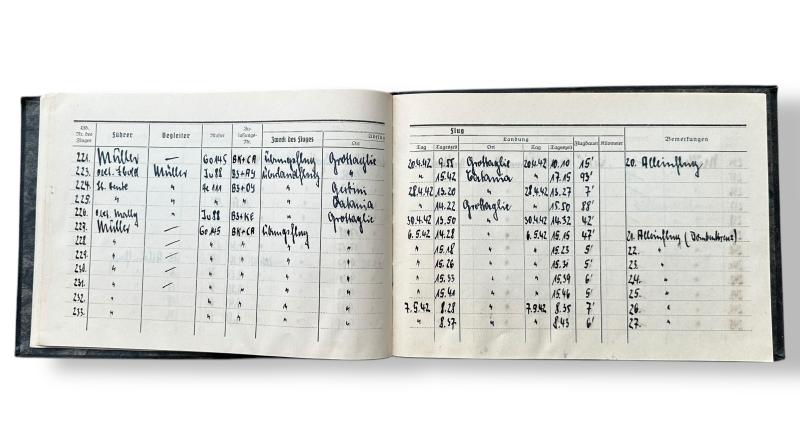 Lfd. Nr. des Fluges Führer Begleiter Muster Zu-lassungs-Nr. Zweck des Fluges Ort
Flug
Landung
Tag Tageszeit Ort Tag Tageszeit Flugdauer Kilometer Bemerkungen
221. Müller — Go 145 BK+CA Übungsflug Grottaglie 20.4.42 9.55 Grottaglie 20.4.42 10.10 15' 20. Alleinflug
223. Müller Ju 88 Überlandflug " " 15.42 Catania " 17.15 93'
224. " He 111 " 28.4.42 13.20 " 28.4.42 13.27 7'
225. " " " " " Catania " 14.22 Grottaglie " 15.50 88'
226. " Ju 88 B3+KE " Grottaglie 30.4.42 13.50 " 30.4.42 14.32 42'
227. Müller — Go 145 BK+CA Übungsflug " 6.5.42 14.28 " 6.5.42 15.15 47' 21. Alleinflug
228. " — " " " " " 15.18 " " 15.23 5' 22. "
229. " — " " " " " 15.26 " " 15.31 5' 23. "
230. " — " " " " " 15.33 " " 15.39 6' 24. "
231. " — " " " " " 15.41 " " 15.46 5' 25. "
232. " " " " " 7.5.42 8.28 " 7.5.42 8.35 7' 26. "
233. " " " " " " 8.37 " " 8.43 6' 27. "